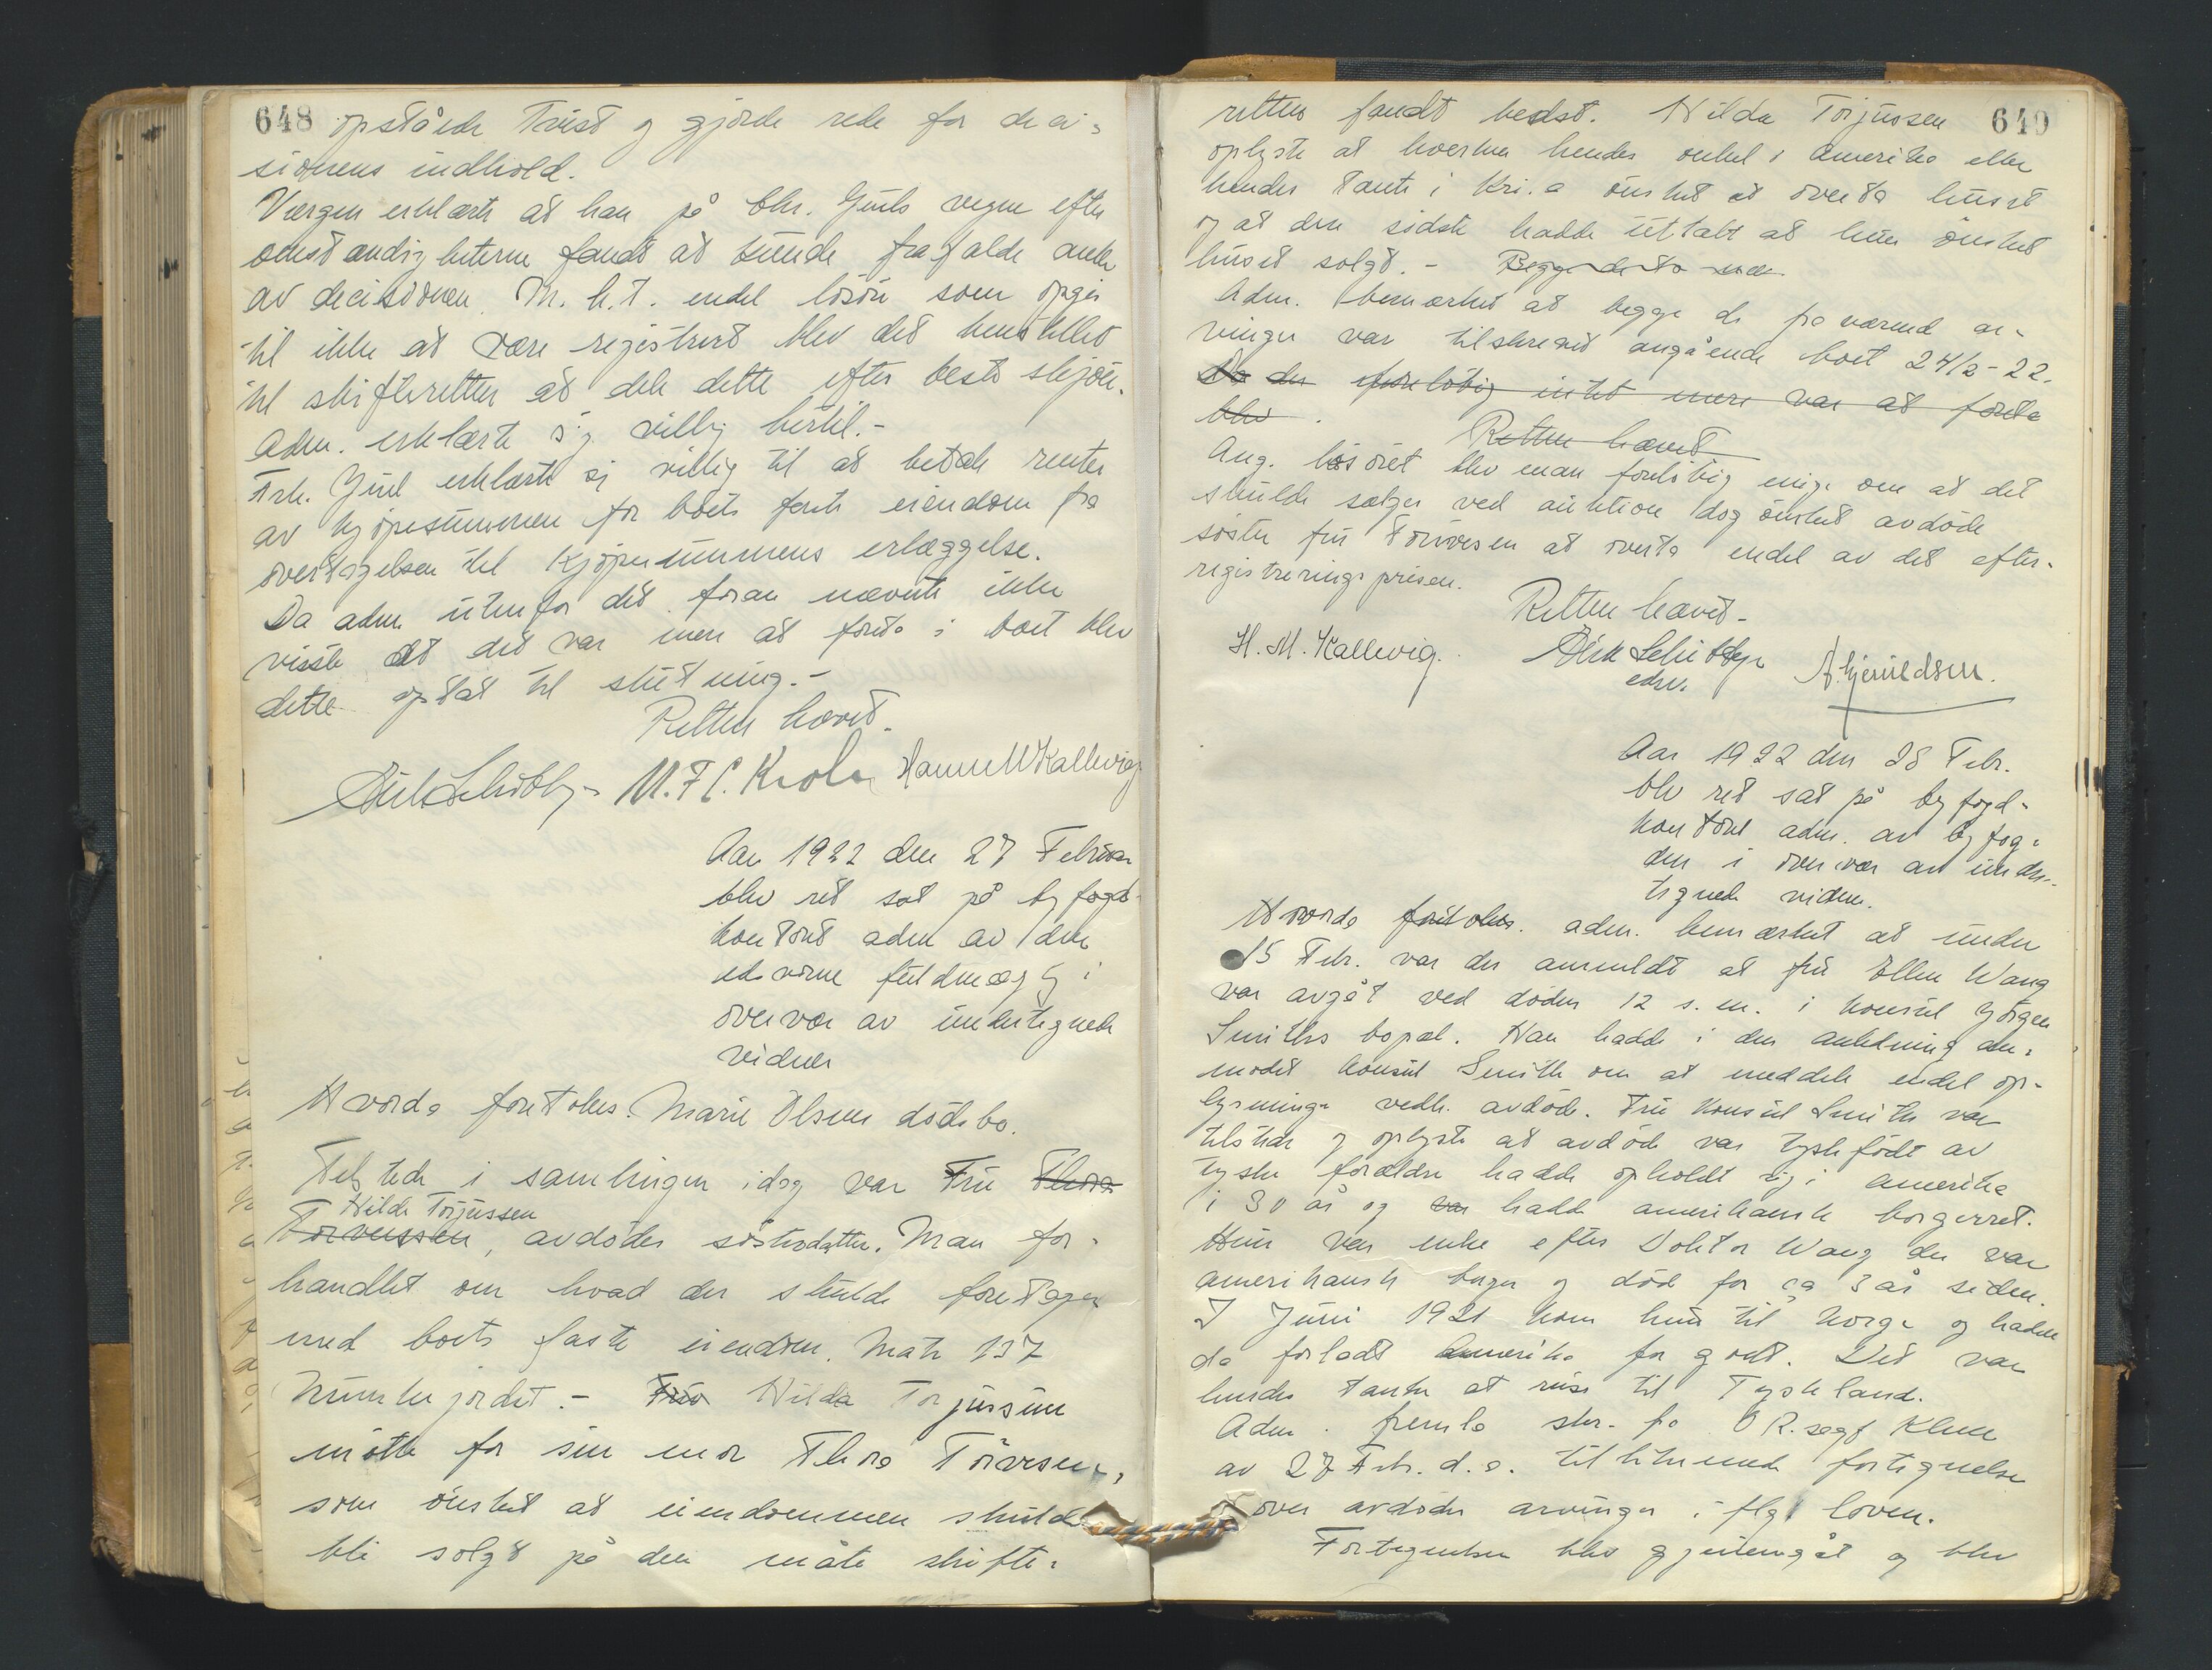 648 opståede Tvist og gjorde rede for deci-
sionens indhold.
Værgen erklærte at han på bhr. Juuls vegne efter
omstændigheterne fandt at kunde frafalde anke
av decisionen. M. h. t. endel løsøre som opgis
til ikke at være registrert blev det henstillet
til skifteretten at dele dette efter beste skjøn.
Adm. erklærte sig villig hertil.-
Frk. Juul erklærte sig villig til at betale renter
av kjøpesummen for boets faste eiendom fra
overtagelsen til kjøpesummens erlæggelse.
Da adm. utenfor det foran nævnte ikke
visste at det var mere at foreta i boet blev
dette optat til slutning.-
Retten hævet.
M. F. C. Hanna M Kallevig
Aar 1922 den 27 Februar
blev ret sat på byfogd-
kontoret adm av den
edsvorne fuldmægtig i
overvær av undertegnede
vidner
Hvorda foretokes. Marie Olsens dødsbo.
Tilstede i samlingen idag var Fru Thora
Hilda Torjussen
Torvessen, avdødes søsterdatter. Man for-
handlet om hvad der skulde foretages
med boets faste eiendom. Matr 137
Munkejordet.- Frk Hilda Torjussen
møtte for sin mor Thora Torvesen,
som ønsket at eiendommen skulde
bli solgt på den måte skifte-
retten fandt bedst. Hilda Torjussen 649
oplyste at hverken hendes onkel i Amerika eller
hendes tante i Kr.a ønsket at overta huset
og at den sidste hadde uttalt at hun ønsket
huset solgt.- Begge de to
Adm. bemærket at begge de fraværend ar-
vinger var tilskrevet angående boet 24/2-22.
Da der foreløbig intet mere var at foreta
blev.
Retten hævet
Ang. løsøret blev man foreløbig enige om at det
skulde sælges ved auktion dog ønsket avdøde
søster fru Torvesen at overta endel av det efter-
registreringsprisen.
Retten hævet-
H. M. Kallevig.
edsv.
Aar 1922 den 28 Febr.
blev ret sat på byfogd-
kontoret adm. av byfog-
den i overvær av under-
tegnede vidner.
Hvorda foretokes. adm. bemærket at under
15 Febr. var der anmeldt at fru Ellen Wang
var avgåt ved døden 12 s. m. i konsul Jørgen
Smiths bopæl. Han hadde i den anledning an-
modet konsul Smith om at meddele endel op-
lysninger vedk. avdøde. Fru Konsul Smith var
tilstede og oplyste at avdøde var tyskfødt av
tyske forældre hadde opholdt sig i Amerika
i 30 år og var hadde amerikansk borgerret.
Hun var enke efter Doktor Wang der var
amerikansk borger og død for ca 3 år siden.
I Juni 1921 kom hun til Norge og hadde
da forladt Amerika for godt. Det var
hendes tanke at reise til Tyskland.
Adm. fremla skr. fra OR.sagf Klem
av 27 Febr. d. a. tillikemed fortegnelse
over avdødes arvinger iflg. loven.
Fortegnelsen blev gjennemgåt og blev